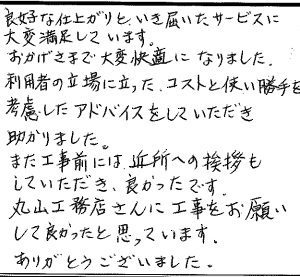 良好な仕上がりと、いき届いたサービスに
大変満足しています。
おかげさまで大変快適になりました。
利用者の立場に立った、コストと使い勝手を
考慮したアドバイスをしていただき
助かりました。
また工事前には、近所への挨拶も
していただき、良かったです。
丸山工務店さんに工事をお願い
して良かったと思っています。
ありがとうございました。